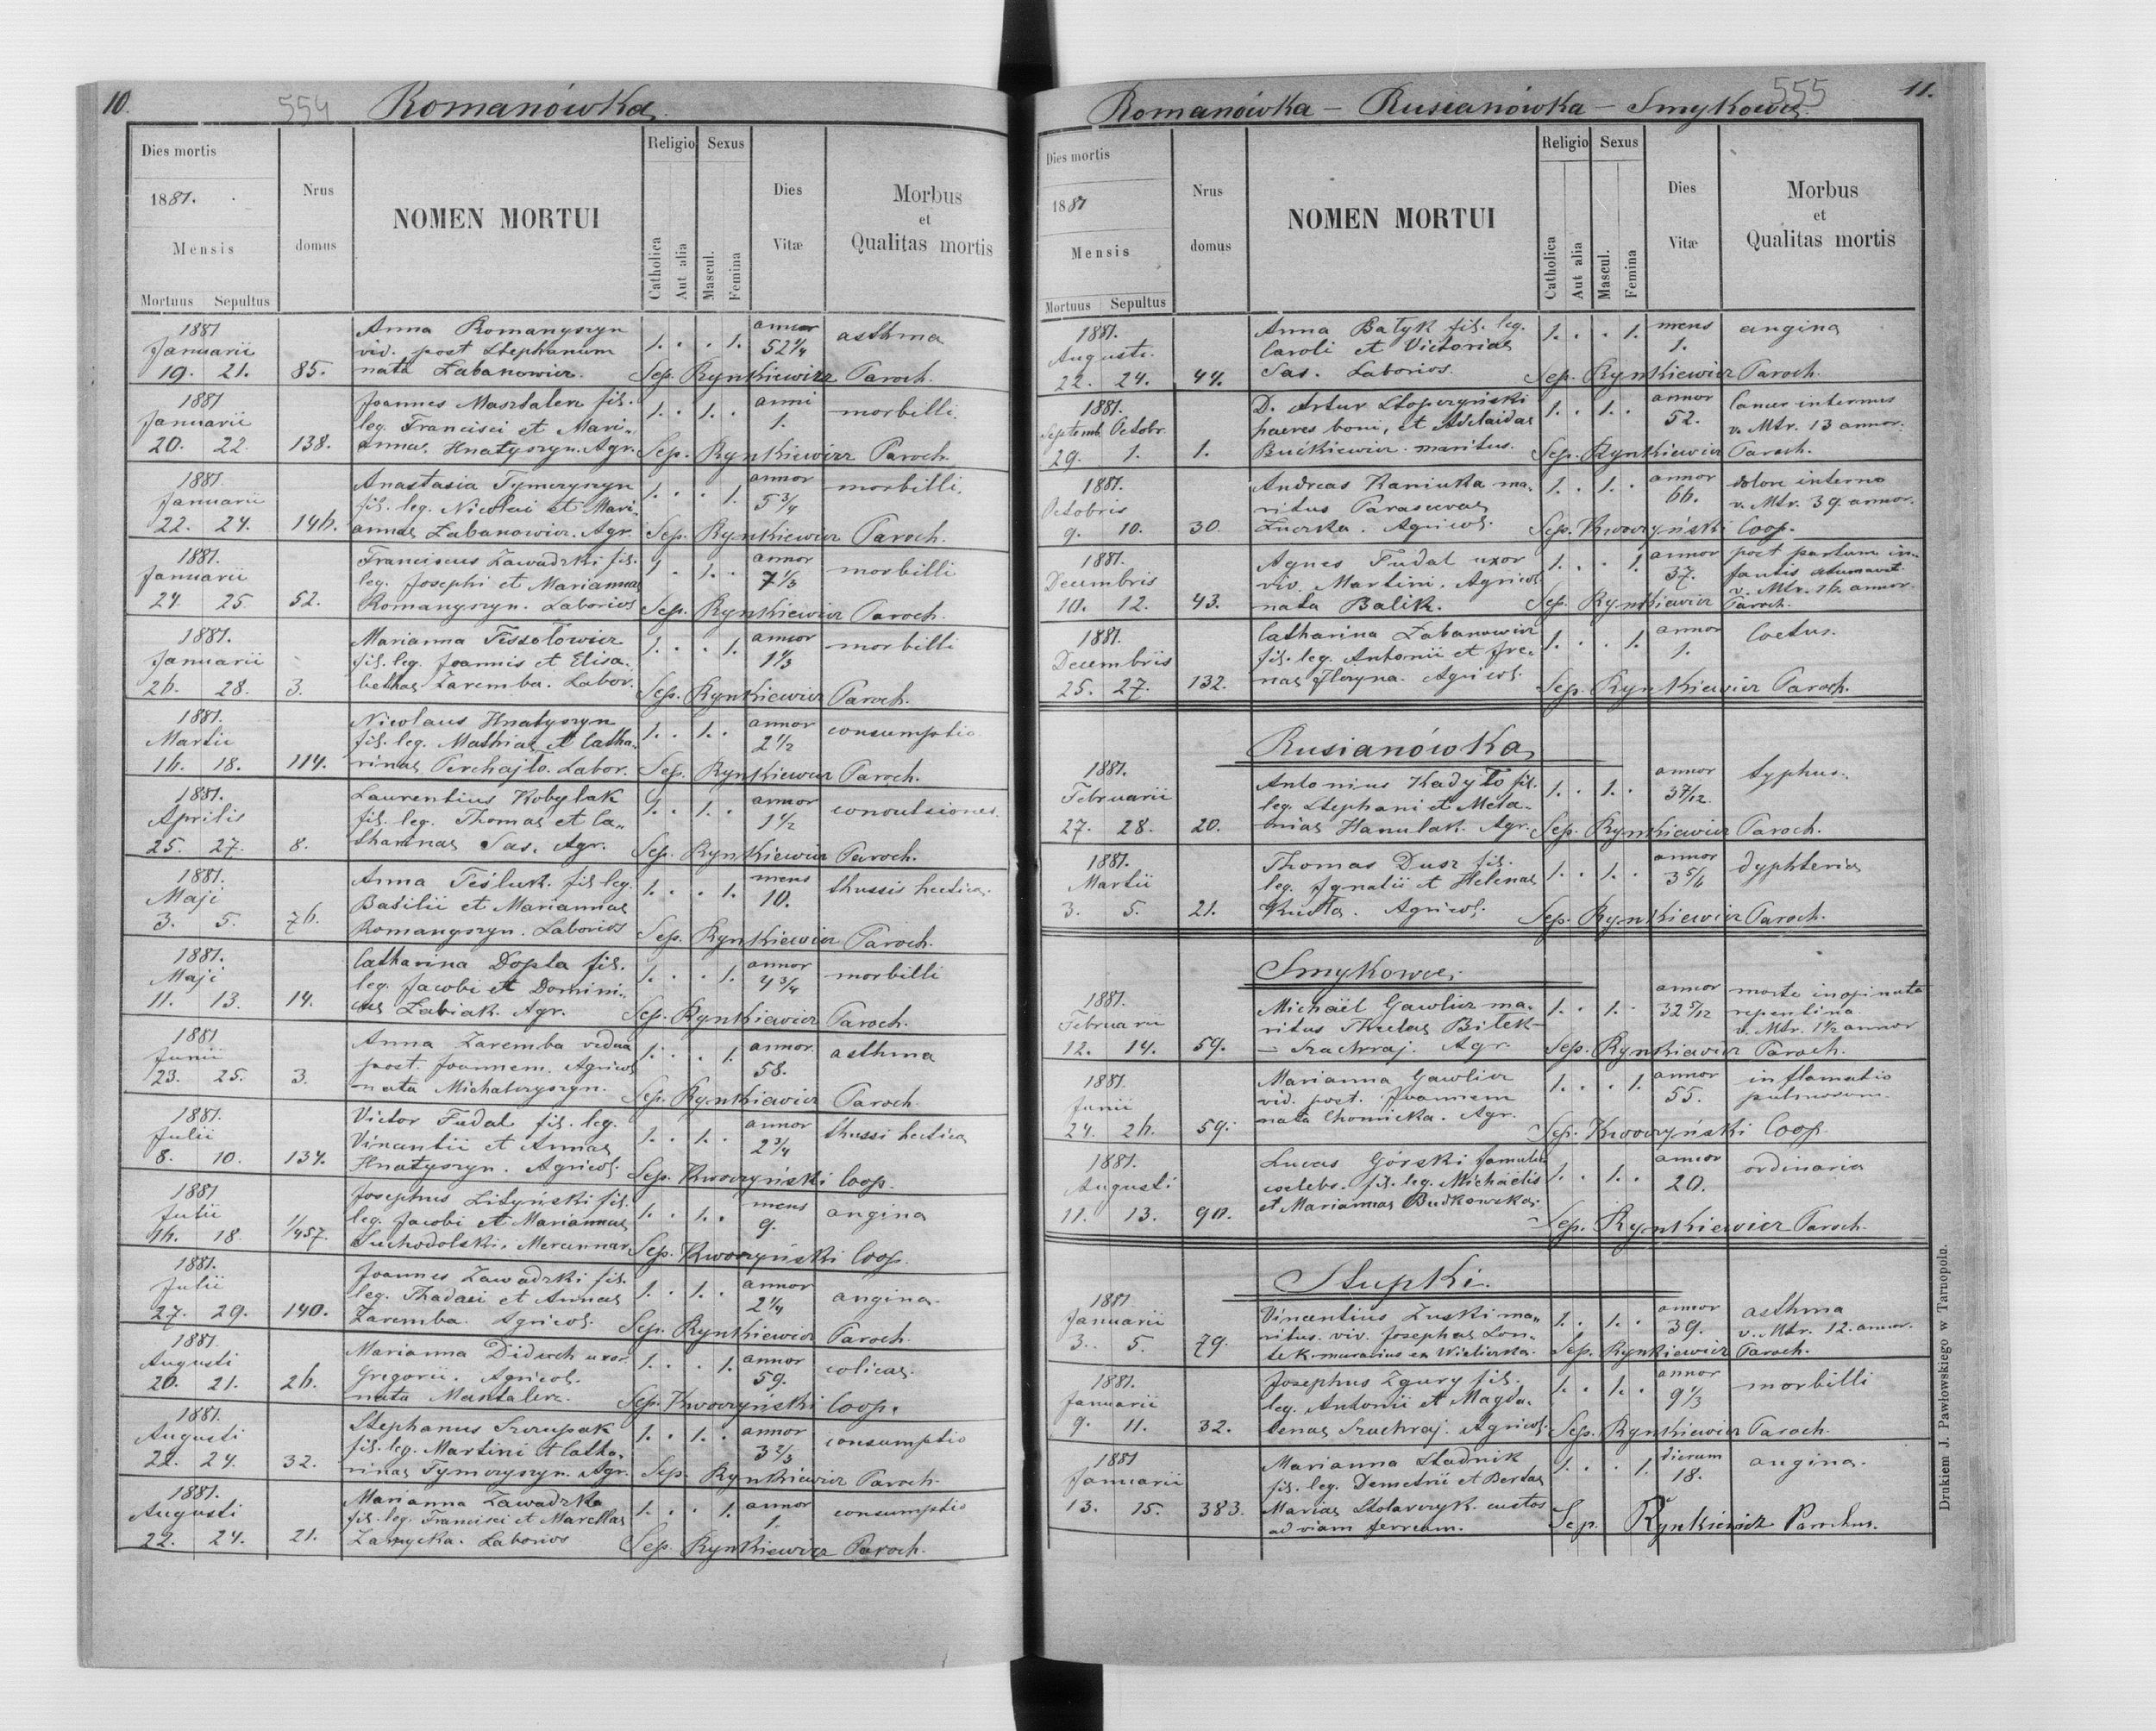 10.
554
Romanówka
Dies mortis
1881.
Mensis
Mortuus Sepultus
Nrus
domus
NOMEN MORTUI
Religio
Catholica
Aut alia
Sexus
Mascul.
Femina
Dies
Vitæ
Morbus
et
Qualitas mortis
1881
Januarii
19. 21. 85.
Anna Romanyszyn
vid. post Stephanum
nata Łabanowicz.
1. . . 1. annor
52 1/4
asthma
Sep. Rynkiewicz Paroch.
1881
Januarii
20. 22. 138.
Joannes Masztalerz fil.
leg. Francisci et Mari-
annae Hnatyszyn. Agr.
1. . 1. . anni
1.
morbilli.
Sep. Rynkiewicz Paroch.
1881.
Januarii
22. 24. 146.
Anastasia Tymczyszyn
fil. leg. Nicolai et Mari-
annae Łabanowicz. Agr.
1. . . 1. annor
5 3/4
morbilli.
Sep. Rynkiewicz Paroch.
1881.
Januarii
24. 25. 52.
Franciscus Zawadzki fil.
leg. Josephi et Mariannae
Romanyszyn. Laborios
1. . 1. . annor
7 1/3
morbilli
Sep. Rynkiewicz Paroch.
1881.
Januarii
26. 28. 3.
Marianna
fil. leg. Joannis et Elisa-
bethae Zaremba. Labor.
1. . . 1. annor
1 1/3
morbilli
Sep. Rynkiewicz Paroch.
1881.
Martii
16. 18. 114.
Nicolaus Hnatyszyn
fil. leg. Mathiae et Catha-
rinae Perchajło. Labor.
1. . 1. . annor
2 1/2
consumptio
Sep. Rynkiewicz Paroch.
1881.
Aprilis
25. 27. 8.
Laurentius Kobylak
fil. leg. Thomae et Ca-
tharinae Sas. Agr.
1. . 1. . annor
1 1/2
convulsiones.
Sep. Rynkiewicz Paroch.
1881.
Maji
3. 5. 76.
Anna Teśluk. fil. leg.
Basilii et Mariannae
Romanyszyn. Laborios
1. . . 1. mens
10.
thussis hectica.
Sep. Rynkiewicz Paroch.
1881.
Maji
11. 13. 14.
Catharina Dopta fil.
leg. Jacobi et Domini-
cae Łabiak. Agr.
1. . . 1. annor
4 3/4
morbilli
Sep. Rynkiewicz Paroch.
1881
Junii
23. 25. 3.
Anna Zaremba vidua
post. Joannem. Agricol
nata Michalczyszyn.
1. . . 1. annor.
58.
asthma
Sep. Rynkiewicz Paroch
1881
Julii
8. 10. 134.
Victor Fudal fil. leg.
Vincentii et Annae
Hnatyszyn. Agricol.
1. . 1. . annor
2 3/4
thussi hectica
Sep. Kwoczyński Coop.
1881
Julii
16. 18. 1/457.
Josephus Lityński fil.
leg. Jacobi et Mariannae
Suchodolski. Mercennar.
1. . 1. . mens
9.
angina
Sep. Kwoczyński Coop.
1881.
Julii
27. 29. 140.
Joannes Zawadzki fil.
leg. Thadaei et Annae
Zaremba. Agricol.
1. . 1. . annor
2 1/4
angina.
Sep. Rynkiewicz Paroch.
1881.
Augusti
20. 21. 26.
Marianna Diduch uxor
Gregorii. Agricol.
nata
1. . . 1. annor
59.
colicas.
Sep. Kwoczyński Coop.
1881.
Augusti
22. 24. 32.
Stephanus Szczupak
fil. leg. Martini et Catha-
rinae Tymczyszyn. Agr.
1. . 1. . annor
3 2/3
consumptio
Sep. Rynkiewicz Paroch.
1881.
Augusti
22. 24. 21.
Marianna Zawadzka
fil. leg. Francisci et Marcellae
Laborios
1. . . 1. annor
1.
consumptio
Sep. Rynkiewicz Paroch.
555
11.
Romanówka – Rusianówka – Smykowce.
Dies mortis
1881
Mensis
Mortuus Sepultus
Nrus
domus
NOMEN MORTUI
Religio
Catholica
Aut alia
Sexus
Mascul.
Femina
Dies
Vitæ
Morbus
et
Qualitas mortis
1881.
Augusti.
22. 24. 44.
Anna Batyk fil. leg.
Caroli et Victoriae
Sas. Laborios.
1. . . 1. mens
1.
angina
Sep. Rynkiewicz Paroch.
1881.
Septemb Octobr.
29. 1. 1.
D. Artur Stopczyński
haeres boni, et Adelaidae
Bućkiewicz maritus.
1. . 1. . annor
52.
Cancer internus
v. Mtr. 13 annor.
Sep. Rynkiewicz Paroch.
1881.
Octobris
9. 10. 30
Andreas Kaniuka ma-
ritus Parascevae
Agricol.
1. . 1. . annor
66.
dolore interno
v. Mtr. 39 annor.
Sep. Kwoczyński Coop.
1881.
Decembris
10. 12. 43.
Agnes Fudal uxor
viv. Martini. Agricol
nata Balik.
1. . . 1. annor
37.
post partum in-
fantis
v. Mtr. 16 annor.
Sep. Rynkiewicz Paroch.
1881.
Decembris
25. 27. 132.
Catharina Łabanowicz
fil. leg. Antonii et Ire-
nae Floryna. Agricol.
1. . . 1. annor
1.
Sep. Rynkiewicz Paroch.
Rusianówka
1881.
Februarii
27. 28. 20.
Antonius Kadyło fil.
leg. Stephani et Mela-
niae Hanulak. Agr.
1. . 1. . annor
3 7/12.
typhus.
Sep. Rynkiewicz Paroch.
1881.
Martii
3. 5. 21.
Thomas Dusz fil.
leg. Ignatii et Helenae
Agricol.
1. . 1. . annor
3 5/6
dyphteria
Sep. Rynkiewicz Paroch.
Smykowce.
1881.
Februarii
12. 14. 59.
Michaël Gawlicz ma-
ritus Theclae Bitek-
– Szachraj. Agr.
1. . 1. . annor
32 5/12
morte inopinata
repentina.
v. Mtr. 1 1/2 annor
Sep. Rynkiewicz Paroch.
1881.
Junii
24. 26. 59.
Marianna Gawlicz
vid. post. Joannem
nata Chomicka. Agr.
1. . . 1. annor
55.
inflamatio
pulmosum.
Sep. Kwoczyński Coop.
1881.
Augusti
11. 13. 90.
Lucas Górski famulus
coelebs. fil. leg. Michaëlis
et Mariannae Budkowska.
1. . 1. . annor
20.
ordinaria
Sep. Rynkiewicz Paroch.
Stupki.
1881
Januarii
3. 5. 79.
Vincentius Zuski ma-
ritus viv. Josephae Lon-
tek murarius ex Wieliczka.
1. . 1. . annor
39.
asthma
v. Mtr. 12. annor.
Sep. Rynkiewicz Paroch.
1881.
Januarii
9. 11. 32.
Josephus Zgury fil.
leg. Antonii et Magda-
lenae Szachraj. Agricol.
1. . 1. . annor
9 1/3
morbilli
Sep. Rynkiewicz Paroch.
1881
Januarii
13. 15. 383.
Marianna Stadnik
fil. leg. Demetrii et Bertae
Mariae Stolarczyk. custos
ad viam ferream.
1. . . 1. dierum
18.
angina.
Sep. Rynkiewicz Parochus.
Drukiem J. Pawłowskiego w Tarnopolu.